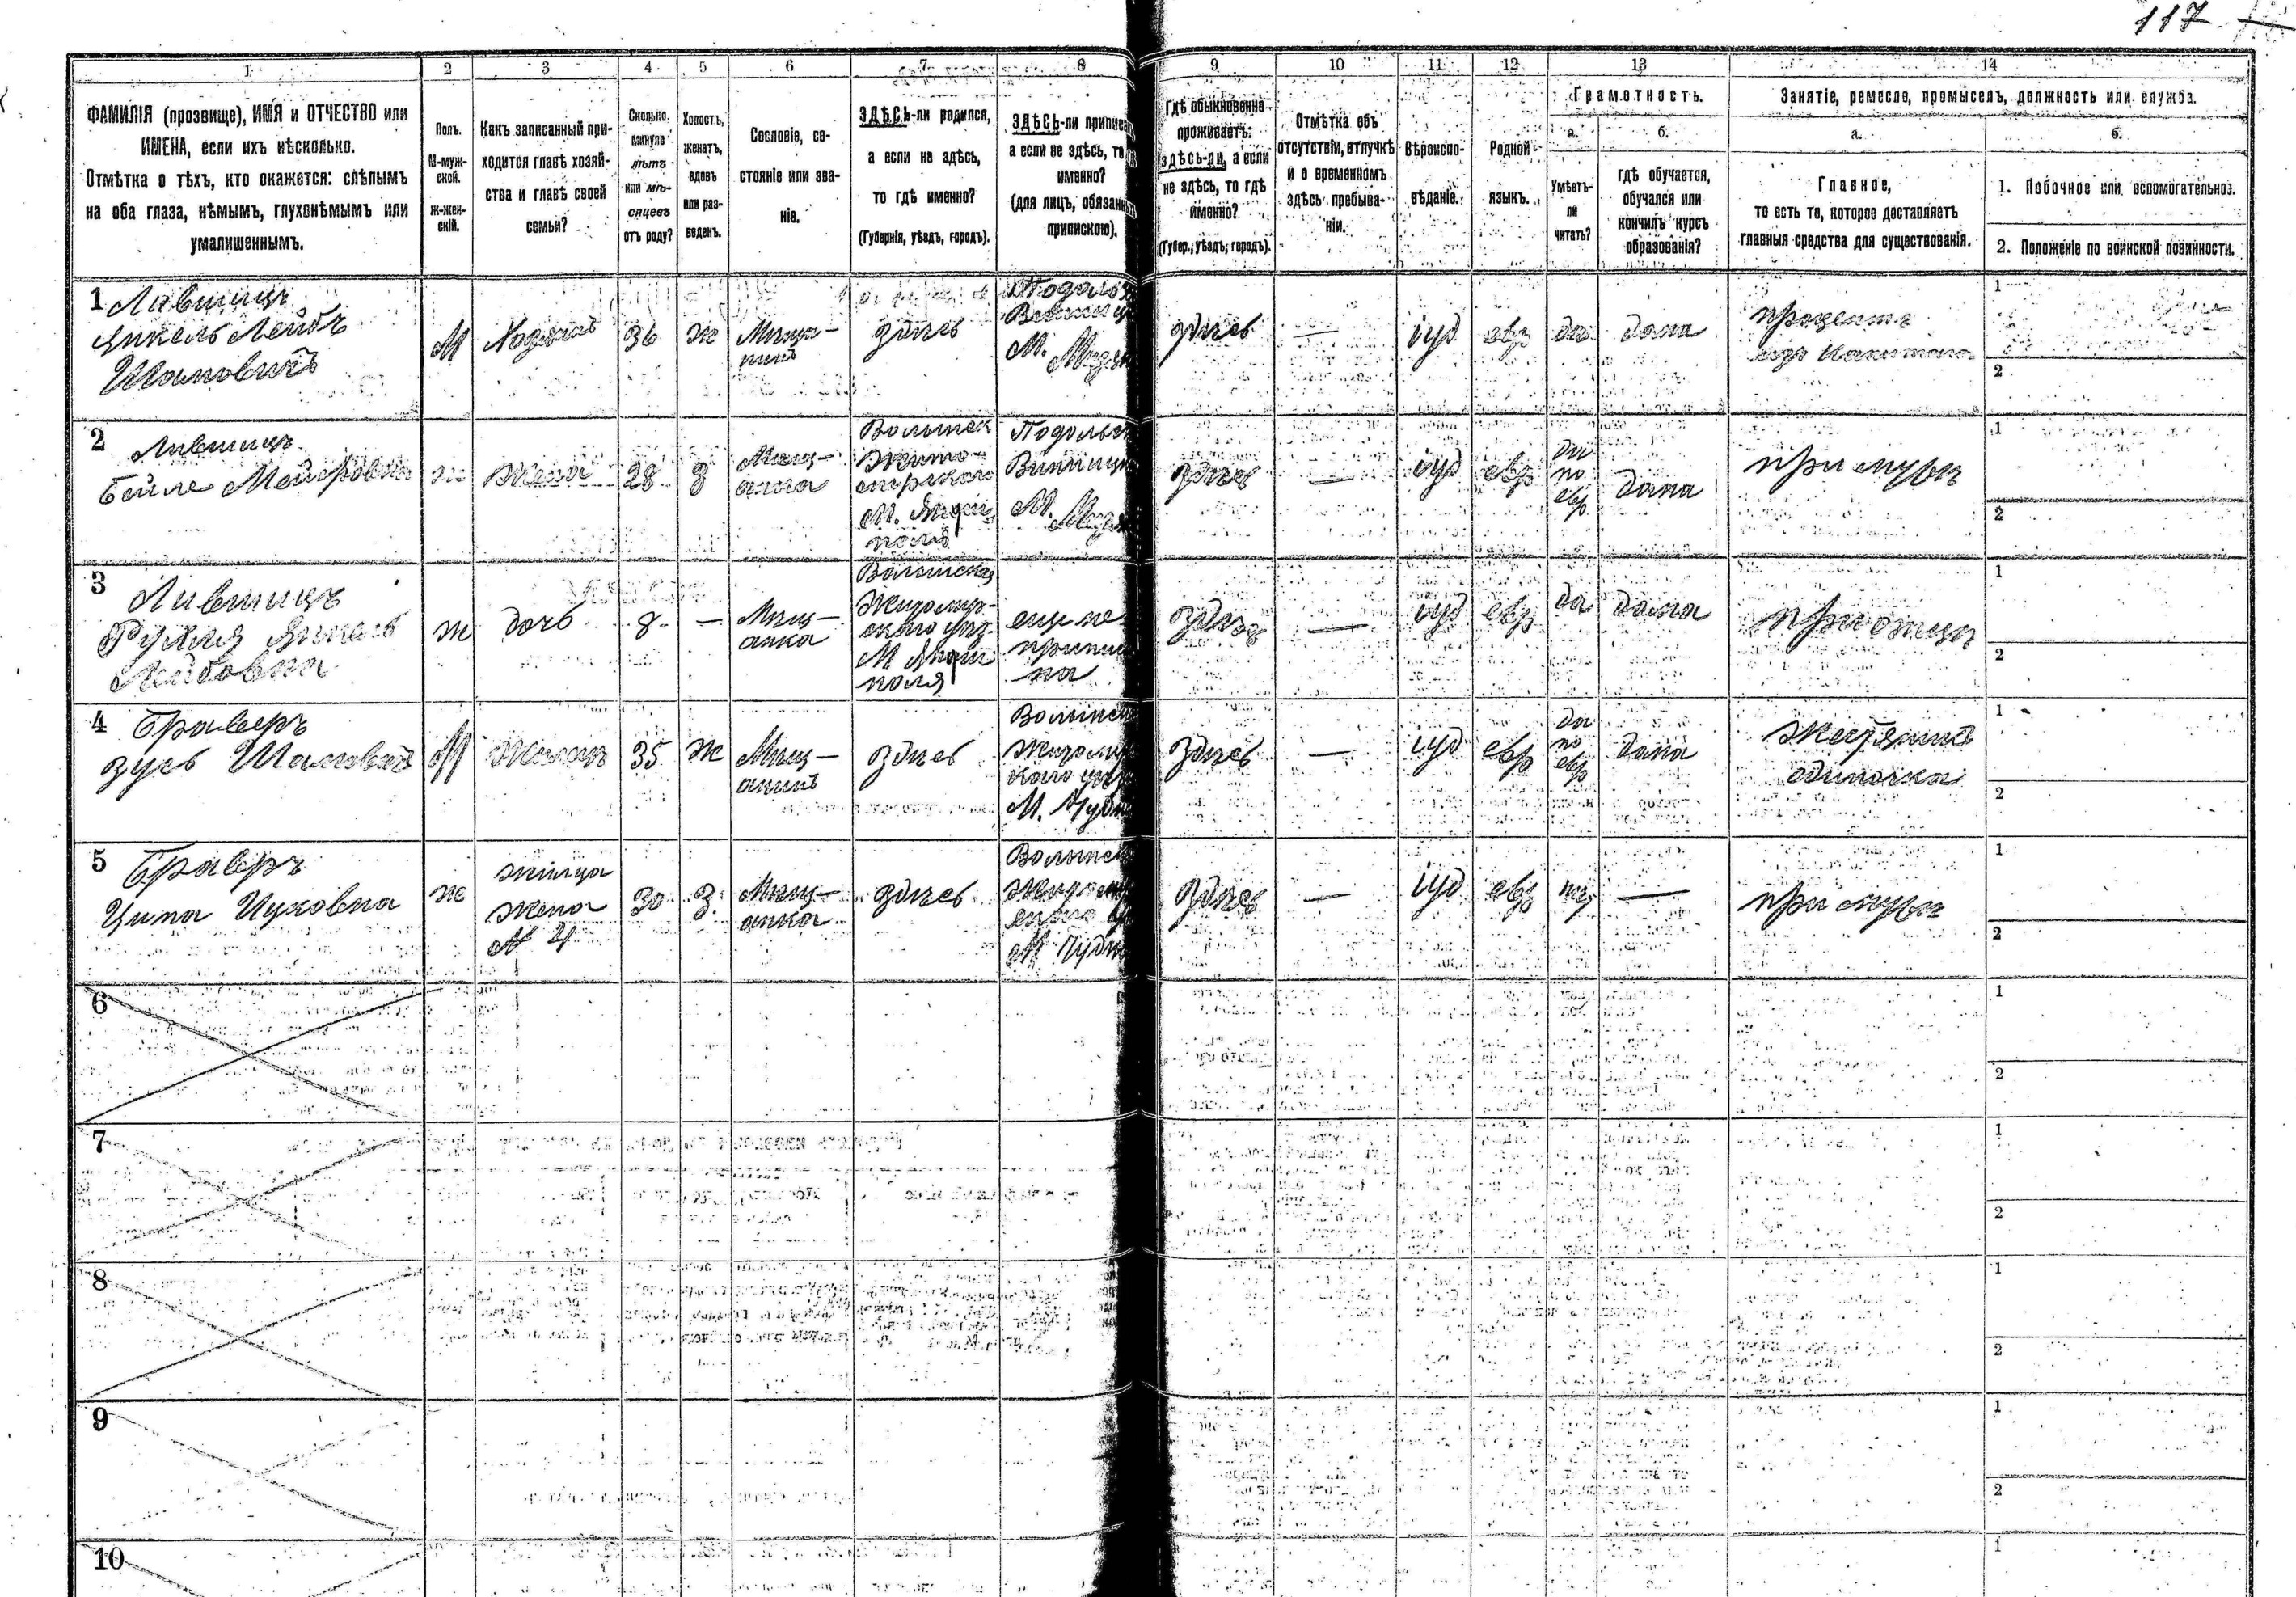 117
1 2 3 4 5 6 7 8 9 10 11 12 13 14
ФАМИЛІЯ (прозвище), ИМЯ и ОТЧЕСТВО или
ИМЕНА, если ихъ нѣсколько.
Отмѣтка о тѣхъ, кто окажется: слѣпымъ
на оба глаза, нѣмымъ, глухонѣмымъ или
умалишеннымъ.
Полъ.
М-муж-
ской.
Ж-жен-
скій.
Какъ записанный при-
ходится главѣ хозяй-
ства и главѣ своей
семьи?
Сколько
минуло
лѣтъ
или мѣ-
сяцевъ
отъ роду?
Холостъ,
женатъ,
вдовъ
или раз-
веденъ.
Сословіе, со-
стояніе или зва-
ніе.
ЗДѢСЬ-ли родился,
а если не здѣсь,
то гдѣ именно?
(Губернія, уѣздъ, городъ).
ЗДѢСЬ-ли приписанъ
а если не здѣсь, то
именно?
(для лицъ, обязанныхъ
припискою).
Гдѣ обыкновенно
проживаетъ:
здѣсь-ли, а если
не здѣсь, то гдѣ
именно?
(Губер., уѣздъ, городъ).
Отмѣтка объ
отсутствіи, отлучкѣ
и о временномъ
здѣсь пребыва-
ніи.
Вѣроиспо-
вѣданіе.
Родной
языкъ.
Грамотность.
а.
Умѣетъ-
ли
читать?
б.
гдѣ обучается,
обучался или
кончилъ курсъ
образованія?
Занятіе, ремесло, промыселъ, должность или служба.
а.
Главное,
то есть то, которое доставляетъ
главныя средства для существованія.
б.
1. Побочное или вспомогательное.
2. Положеніе по воинской повинности.
1
Лившицъ
Янкель Лейбъ
Шамовичъ
М
Хозяинъ
36
ж
Мѣща-
нинъ
здѣсь
Подоль
Винниц
М.
здѣсь
—
іуд
евр
да
дома
процентъ
изъ капитала
1
2
2
Лившицъ
Бейле Мейеровна
ж
жена
28
з
Мѣщ-
анка
Волынск
Жито-
мирскаго
М. Януш
поля
Подольск
Винницк
М.
здѣсь
—
іуд
евр
да
по
евр
дома
при мужѣ
1
2
3
Лившицъ
Рухля Янкель
Лейбовна
ж
дочь
8
—
Мѣщ-
анка
Волынская
Житомир-
скаго уѣз
М Януш
поля
еще не
припис
на
здѣсь
—
іуд
евр
да
дома
при отцѣ
1
2
4
Браверъ
Зусь Шамовичъ
М
Жилецъ
35
ж
Мѣщ-
анинъ
здѣсь
Волынск
Житомир
скаго уѣз
М. Чудн
здѣсь
—
іуд
евр
да
по
евр
дома
одиночка
1
2
5
Браверъ
Ципа Ицковна
ж
жилица
жена
№ 4
30
з.
Мѣщ-
анка
здѣсь
Волынск
Житомир
скаго у
М Чудно
здѣсь
—
іуд
евр
нѣт
—
при мужѣ
1
2
6
1
2
7
1
2
8
1
2
9
1
2
10
1